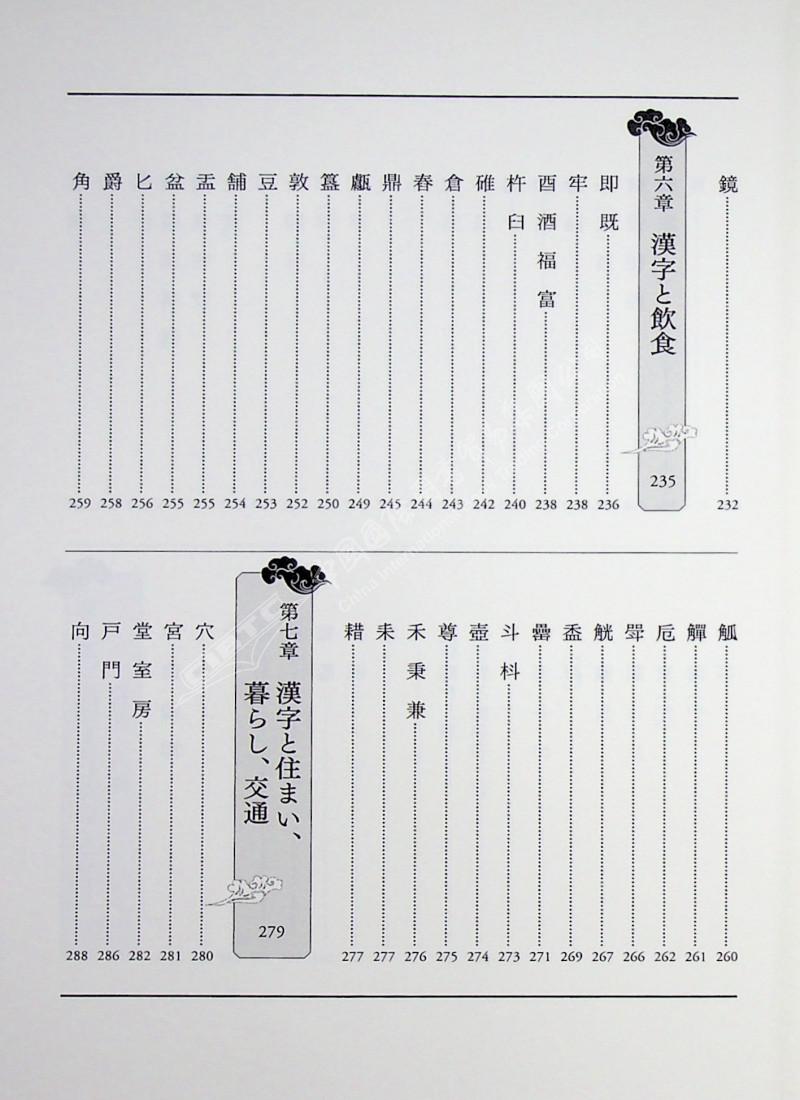 鏡 232
第六章 漢字と飲食 235
即 既 236
牢 238
酉 酒 福 富 238
杵 臼 240
碓 242
倉 243
舂 244
鼎 245
甗 249
簋 250
敦 252
豆 253
舗 254
盂 255
盆 255
匕 256
爵 258
角 259
觚 260
觶 261
卮 262
斝 266
觥 267
盉 269
罍 271
斗 枓 273
壺 274
尊 275
禾 秉 兼 276
耒 277
耤 277
第七章 漢字と住まい、
暮らし、交通 279
穴 280
宮 281
堂 室 房 282
戸 門 286
向 288
CIBTC